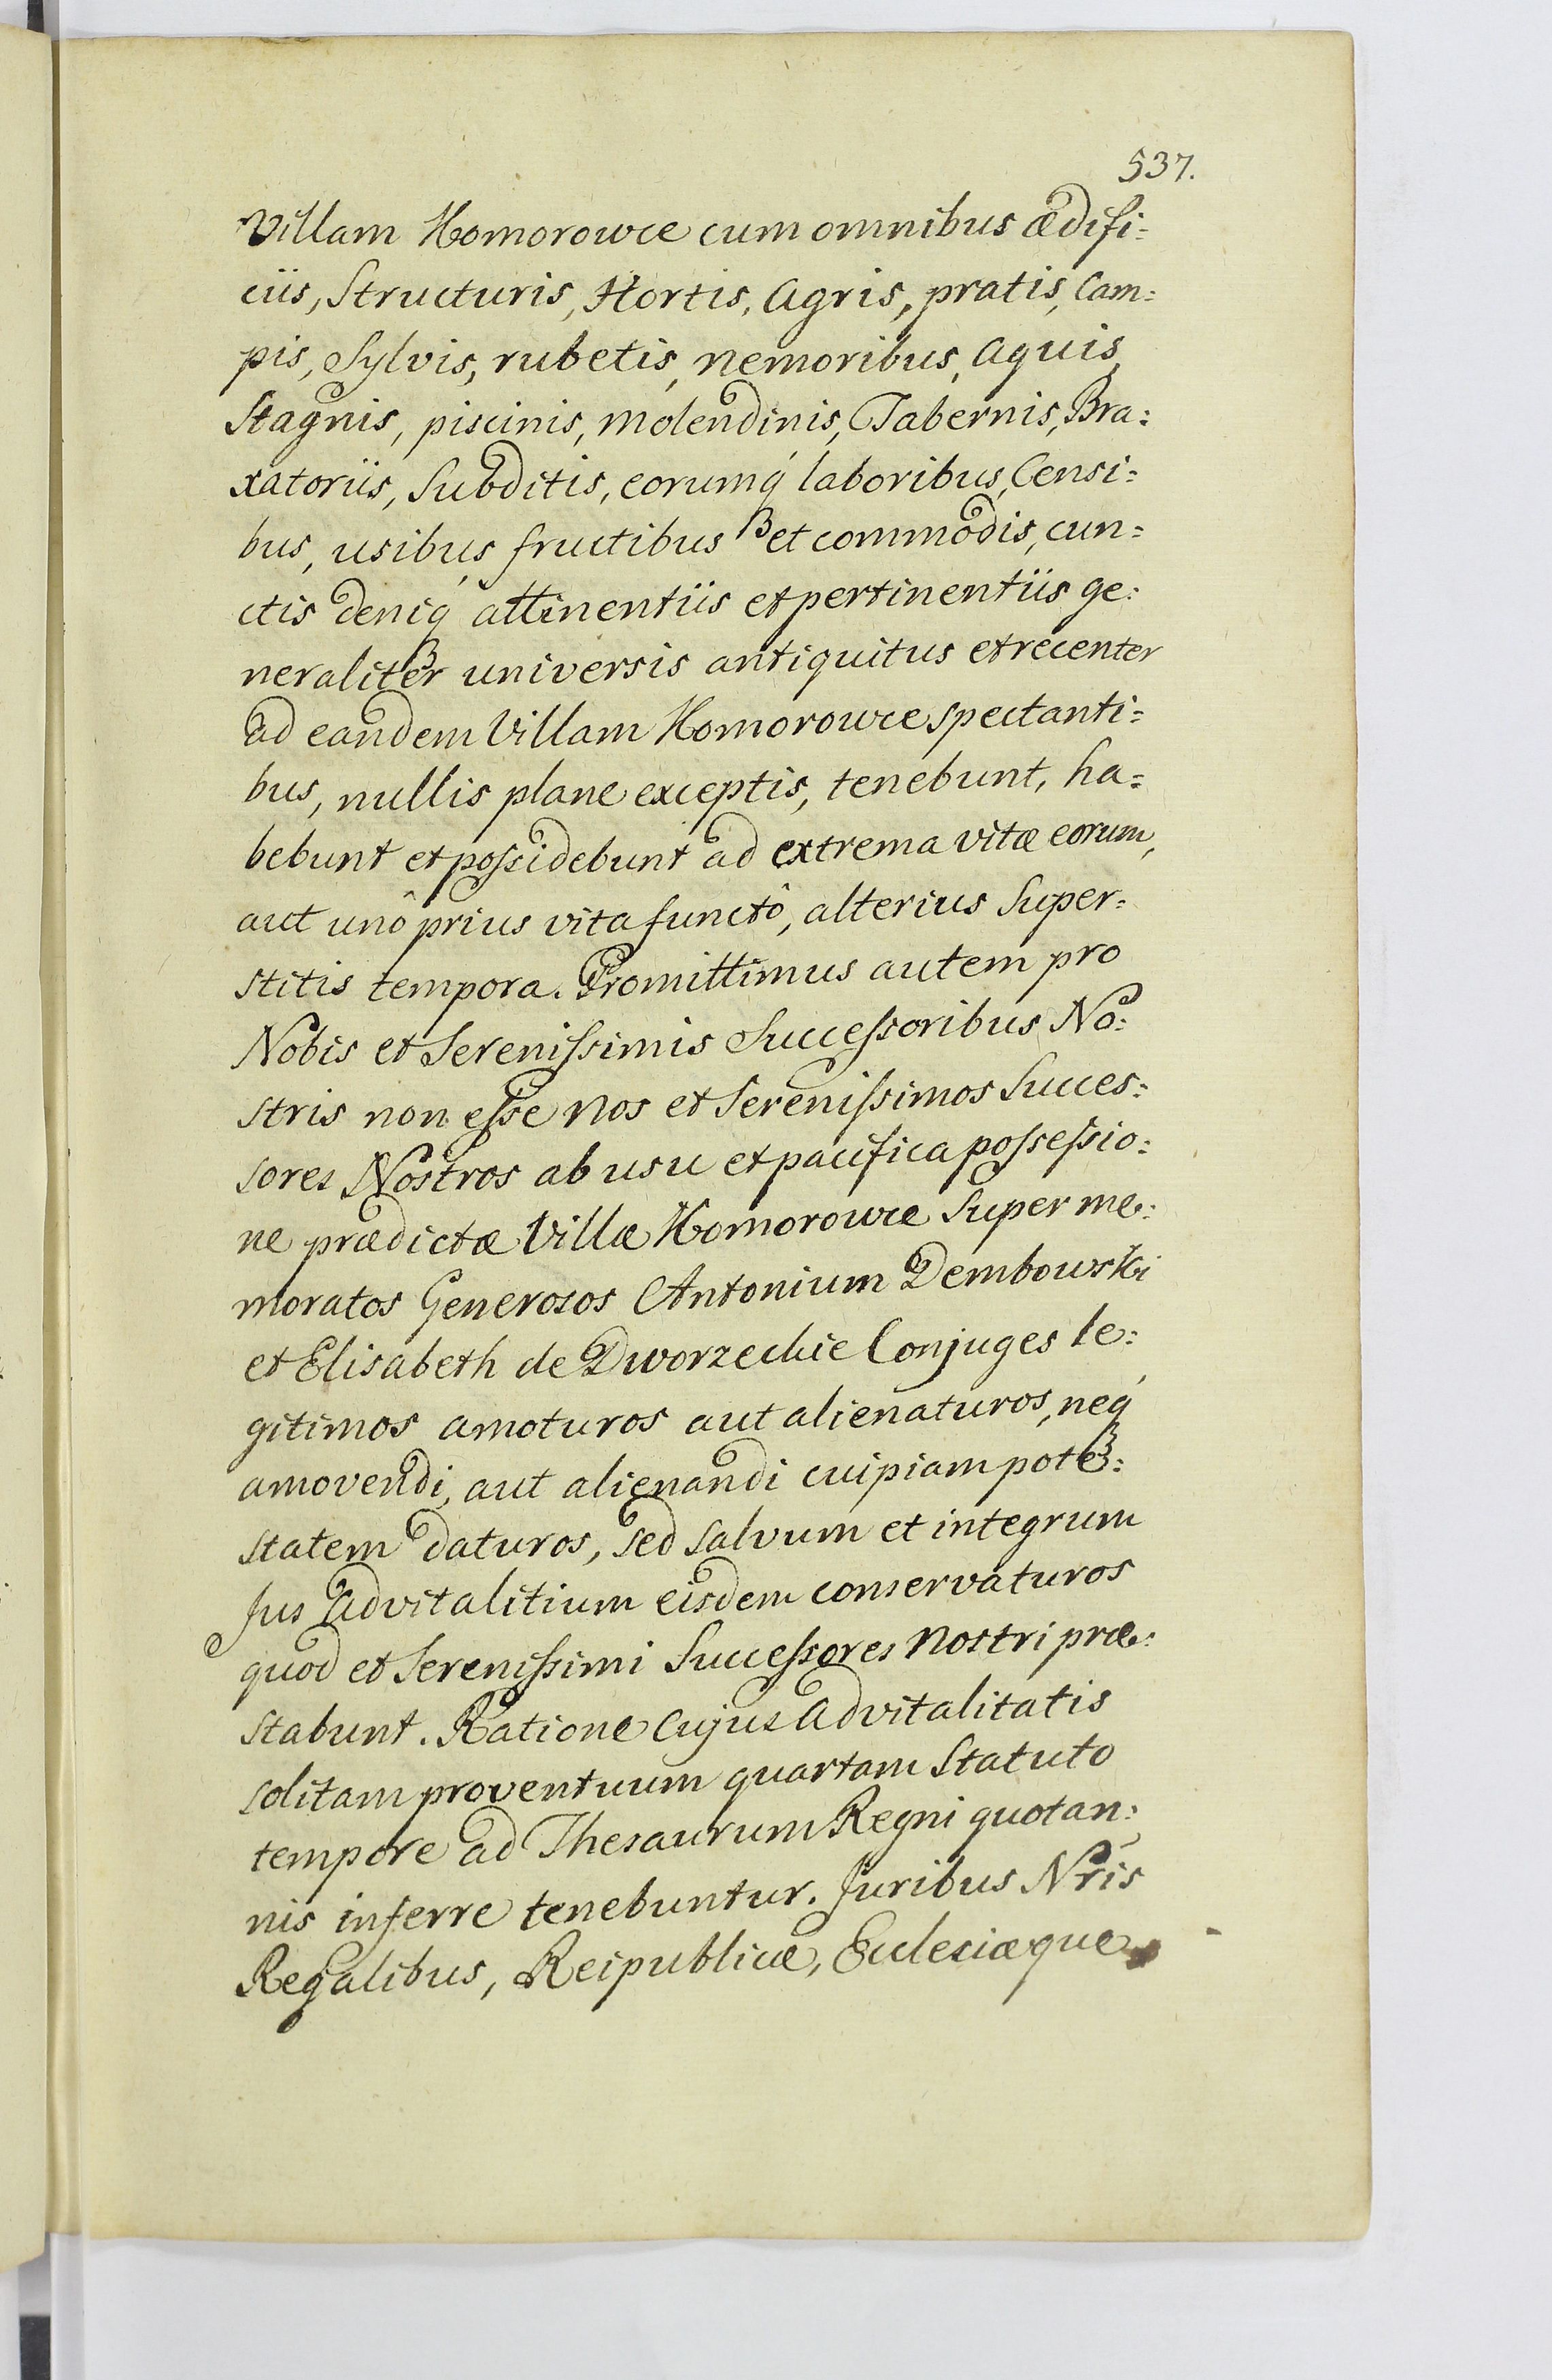 537.
Villam Komorowce cum omnibus ædifi=
ciis, Structuris, Hortis, Agris, pratis, Cam=
pis, Sylvis, rubetis, nemoribus, Aquis,
Stagnis, piscinis, molendinis, Tabernis, Bra=
xatoriis, Subditis, eorumq́ꝫ laboribus, Censi=
bus, usibus, fructibus et commodis, cun=
ctis deniq́ꝫ attinentiis et pertinentiis ge=
neraliter universis antiquitus et recenter
ad eandem Villam Komorowce spectanti=
bus, nullis plane exceptis, tenebunt, ha=
bebunt et poſsidebunt ad extrema vitæ eorum,
aut unô prius vita functô, alterius Super=
stitis tempora. Promittimus autem pro
Nobis et Sereniſsimis Succeſsoribus No=
stris non eſse Nos et Sereniſsimos Succes=
sores Nostros ab usu et pacifica poſseſsio=
ne prædictæ Villæ Komorowce Super me=
moratos Generosos Antonium Dembowski
et Elisabeth de Dworzeckie Conjuges le=
gitimos amoturos aut alienaturos, neq́ꝫ
amovendi, aut alienandi cuipiam pote=
statem daturos, sed salvum et integrum
Jus Advitalitium eisdem conservaturos
quod et Sereniſsimi Succeſsores Nostri præ=
stabunt. Ratione Cujus Advitalitatis
solitam proventuum quartam Statuto
tempore ad Thesaurum Regni quotan=
nis inferre tenebuntur. Juribus Nris
Regalibus, Reipublicæ, Ecclesiæque